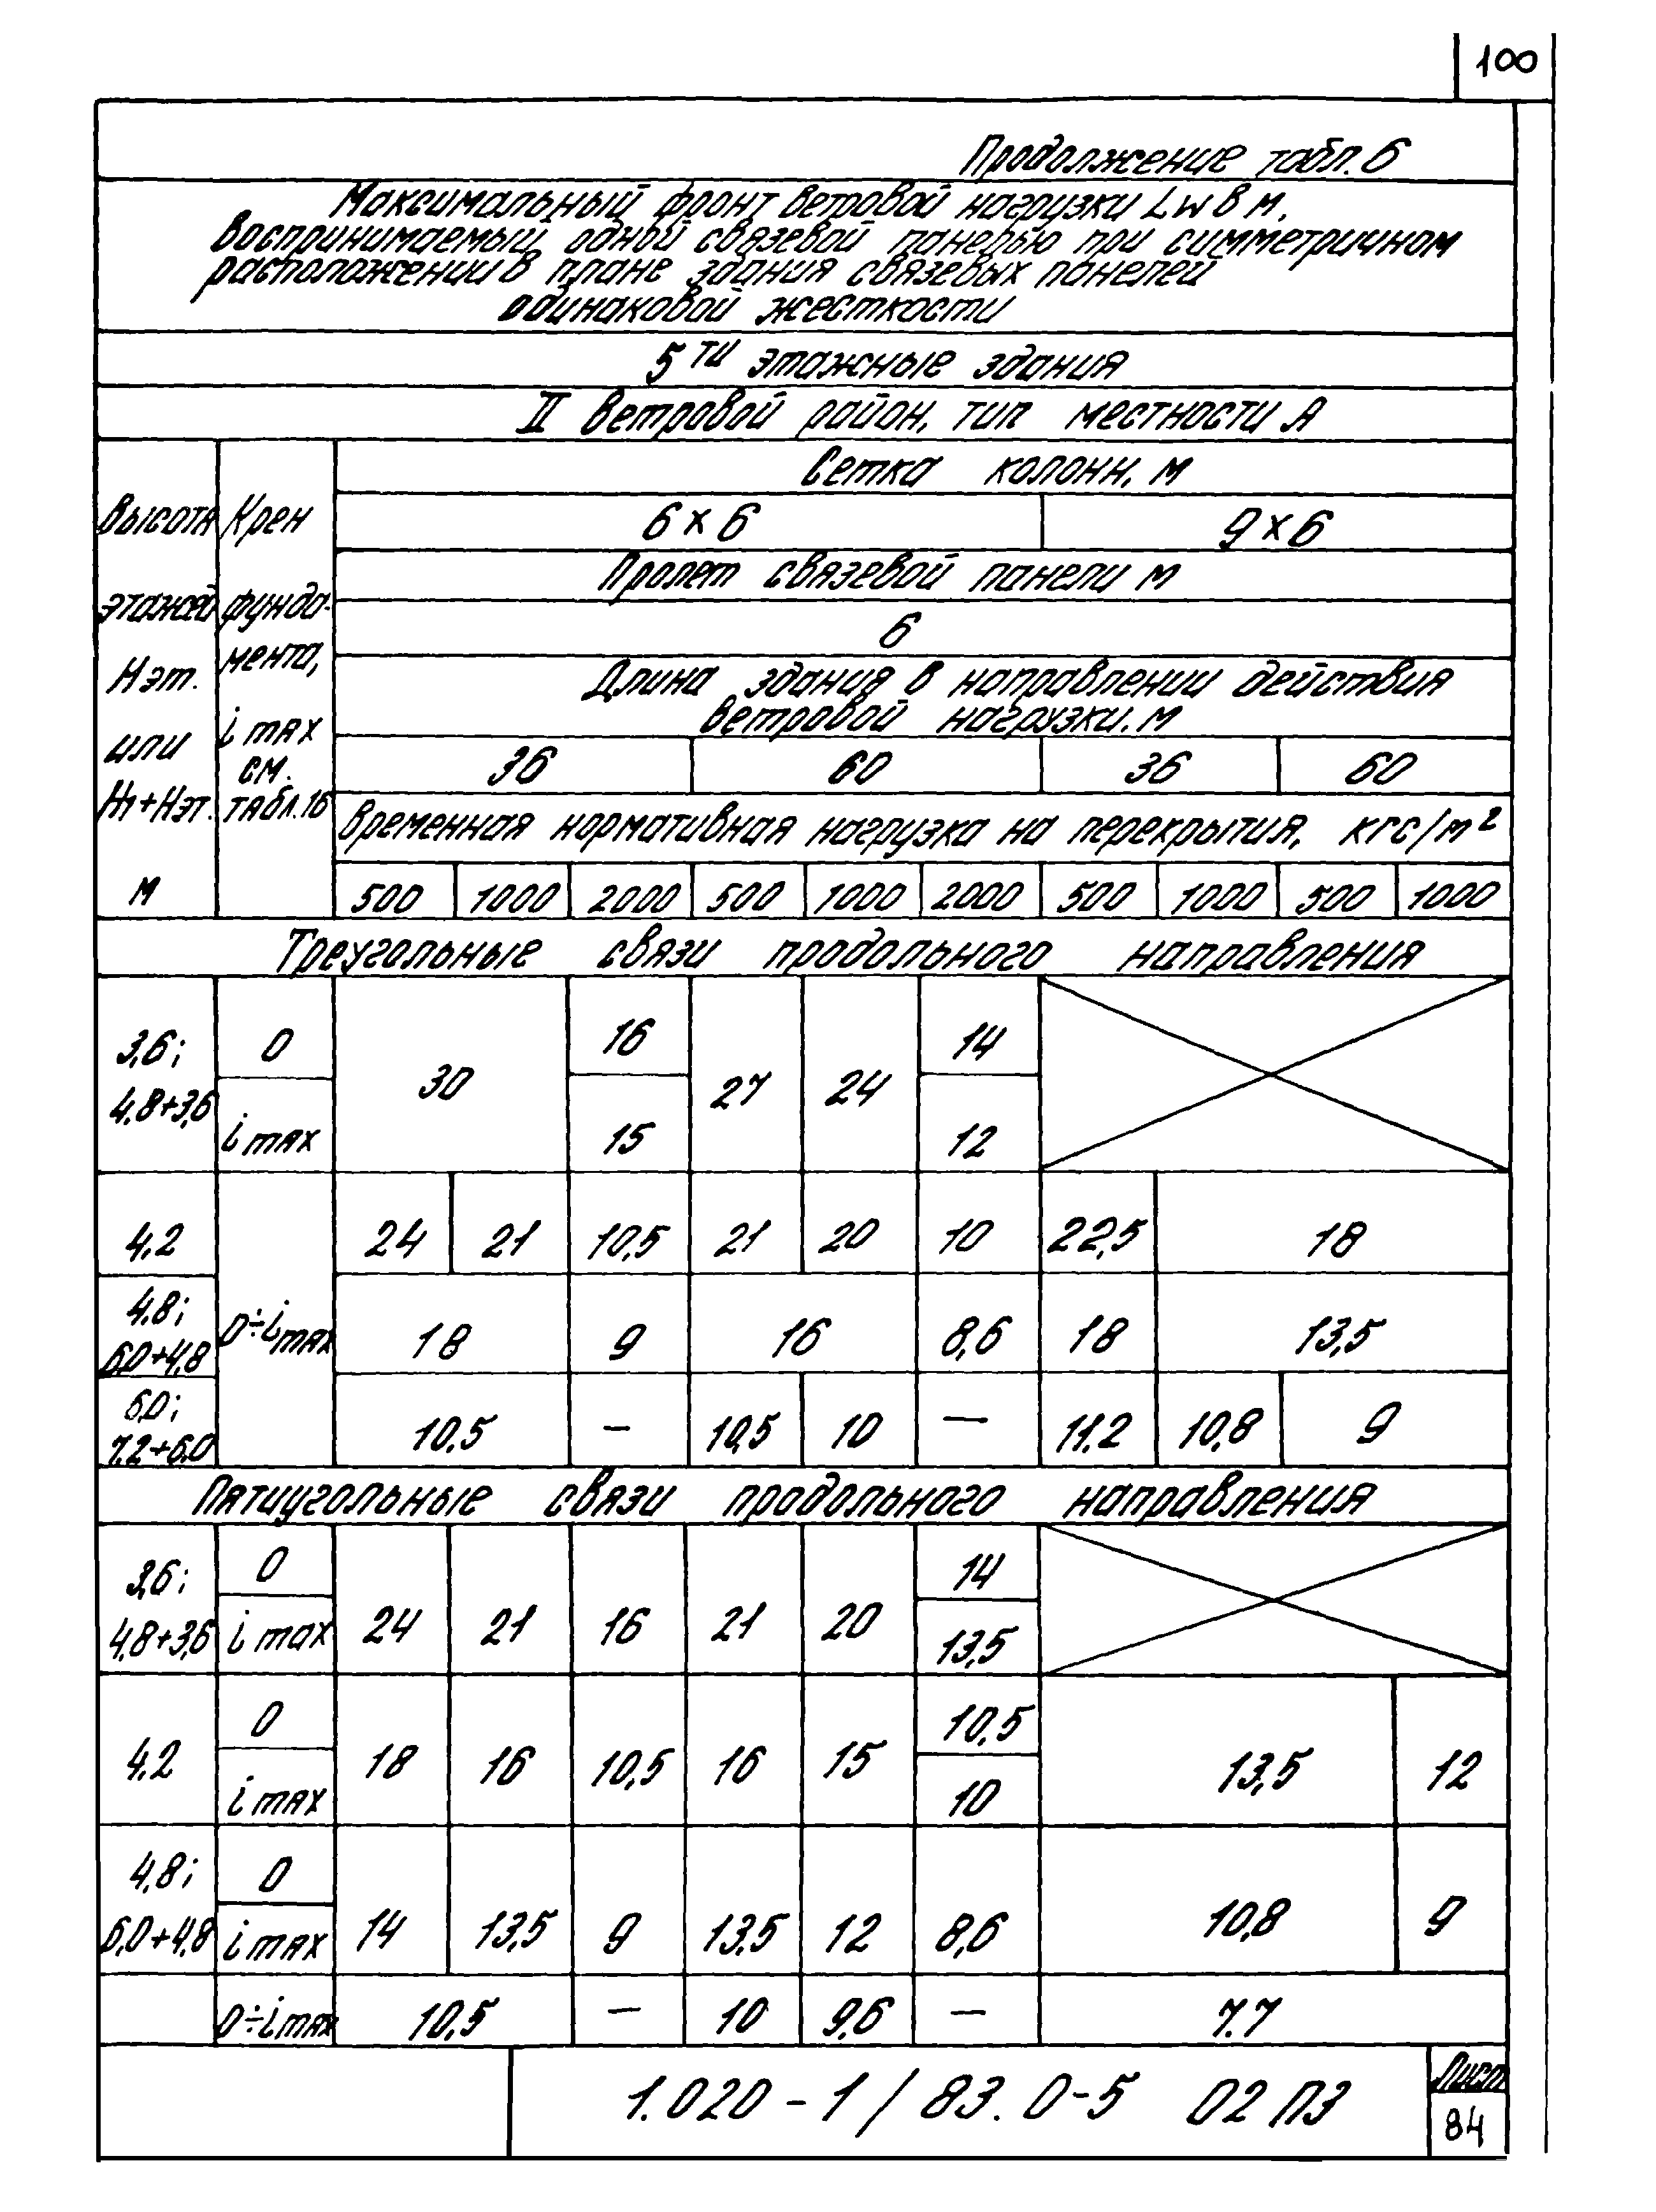 100
Продолжение табл. 6
Максимальный фронт ветровой нагрузки Lw в м,
воспринимаемый одной связевой панелью при симметричном
расположении в плане здания связевых панелей
одинаковой жесткости
5ти этажные здания
II ветровой район, тип местности А
Высота этажей Нэт. или Н1+Нэт. м
Крен фунда-
мента, i max см. табл. 16
Сетка колонн, м
6×6 9×6
Пролет связевой панели м
6
Длина здания в направлении действия
ветровой нагрузки, м
36 60 36 60
Временная нормативная нагрузка на перекрытия, кгс/м²
500 1000 2000 500 1000 2000 500 1000 500 1000
Треугольные связи продольного направления
3,6; 0 16 14
4,8+3,6 30 27 24
i max 15 12
4,2 24 21 10,5 21 20 10 22,5 18
4,8;
6,0+4,8 0÷i max 18 9 16 8,6 18 13,5
6,0;
7.2+6.0 10,5 — 10,5 10 — 11.2 10,8 9
Пятиугольные связи продольного направления
3,6; 0 14
4,8+3,6 i max 24 21 16 21 20 13,5
0 10,5
4,2 18 16 10,5 16 15 13,5 12
i max 10
4,8; 0
6,0+4,8 i max 14 13,5 9 13,5 12 8,6 10,8 9
0÷i max 10,5 — 10 9,6 — 7.7
1.020-1/83.0-5 02 ПЗ
Лист
84